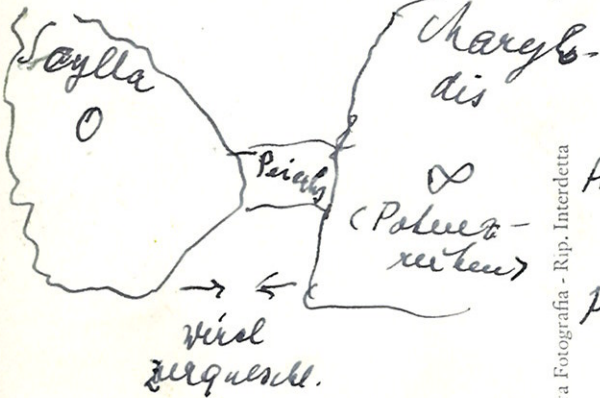 Scylla
0
Charyb-
dis
∞
(Potenz-
reihen)
→ ←
wird
zerquetscht.
a Fotografia - Rip. Interdetta